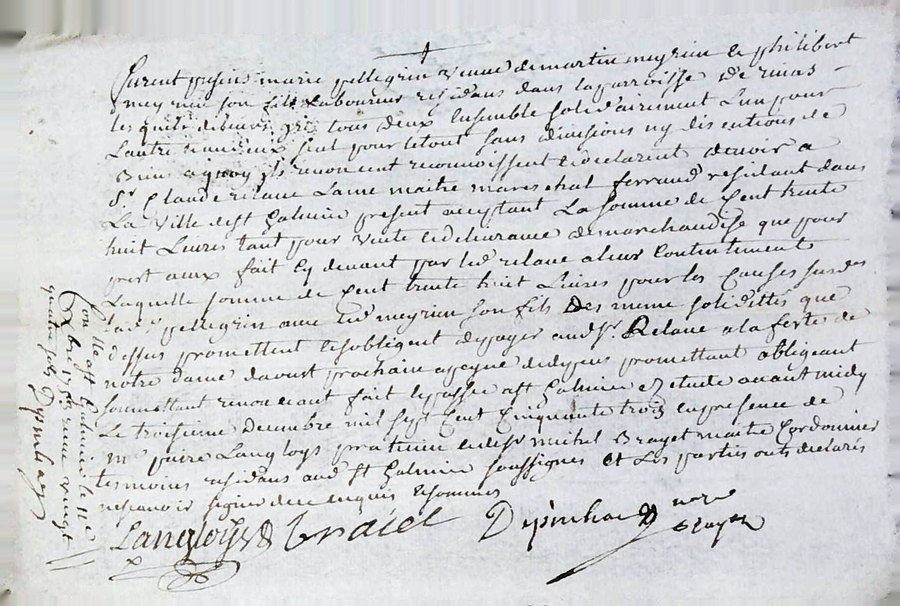 furent presens marie pellegrin veuve de martin meyrieu & philibert
meyrieu son fils laboureur residans dans la parroisse de rivas
lesquels de leurs gré tous deux ensemble solidairement l'un pour
l'autre un deux seul pour le tout sans divisions ny discutions de
biens a quoy ils renoncent reconnoissent & declarent devoir a
Sr Claude relave Laine maitre mareschal ferrand residant dans
La Ville de st Galmier present acceptant La somme de Cent trente
huit Livres tant pour vente & delivrance de marchandise que pour
pert a eux fait cy devant par led relave a leur Contentement
Laquelle somme de Cent trente huit Livres pour les Causes susdes
lade pellegrin avec led meyrieu son fils des meme solidittés que
dessus promettent & sobligent de payer aud Sr Relave a la feste de
notre dame daoust prochain a peyne de depens promettant obligeant
soumettant renoncant fait & passé a st Galmier estude avant midy
Le troisieme decembre mil sept Cent Cinquante trois en presence de
me faire Langloys praticien & de sr michel Brayet maitre Cordonnier
temoins residans aud st Galmier soussignes et Les parties onts declarés
ne scavoir signer de ce enquis & sommés
Langloys Braiel
nore
Con lle a st Galmier le 11e
Xbre 1753 reçu vingt
quatre sols